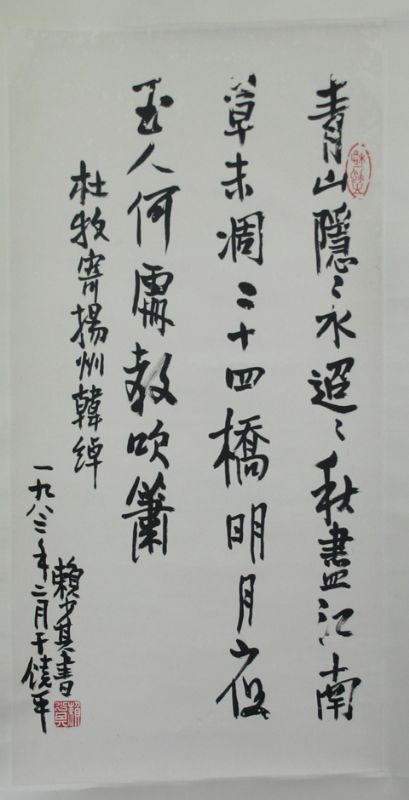 青山隱〻水迢〻秋盡江南
草未凋二十四橋明月夜
玉人何處教吹簫
杜牧寄揚州韓綽
賴少其書
一九八三年二月于饒平